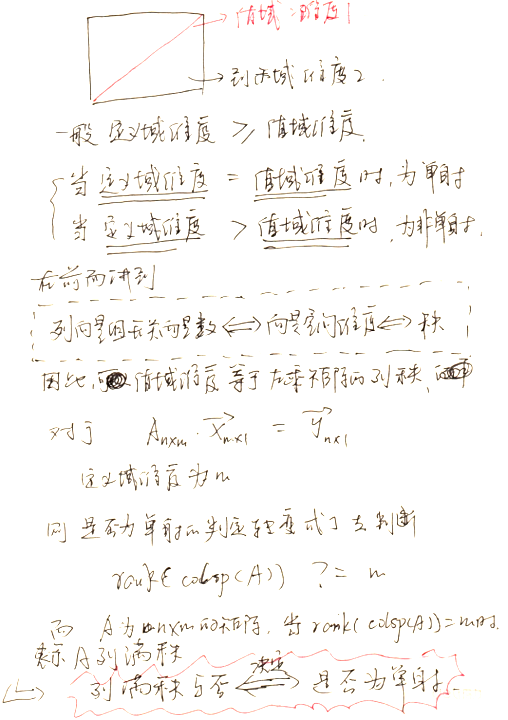 值域:维度1
到达域维度2
一般 定义域维度 ≥ 值域维度.
当 定义域维度 = 值域维度时,为单射
当 定义域维度 > 值域维度时,为非单射.
在前面讲到
列向量组无关向量数 ⟺ 向量空间维度 ⟺ 秩
因此, 值域维度等于左乘矩阵的列秩,
对于 Aₙₓₘ · x⃗ₘₓ₁ = y⃗ₙₓ₁
定义域维度为m
则 是否为单射的判定转变成了去判断
rank( colsp(A)) ?= m
而 A为nxm的矩阵, 当 rank( colsp(A))=m时.
表示A列满秩
决定
列满秩与否 ⟺ 是否为单射